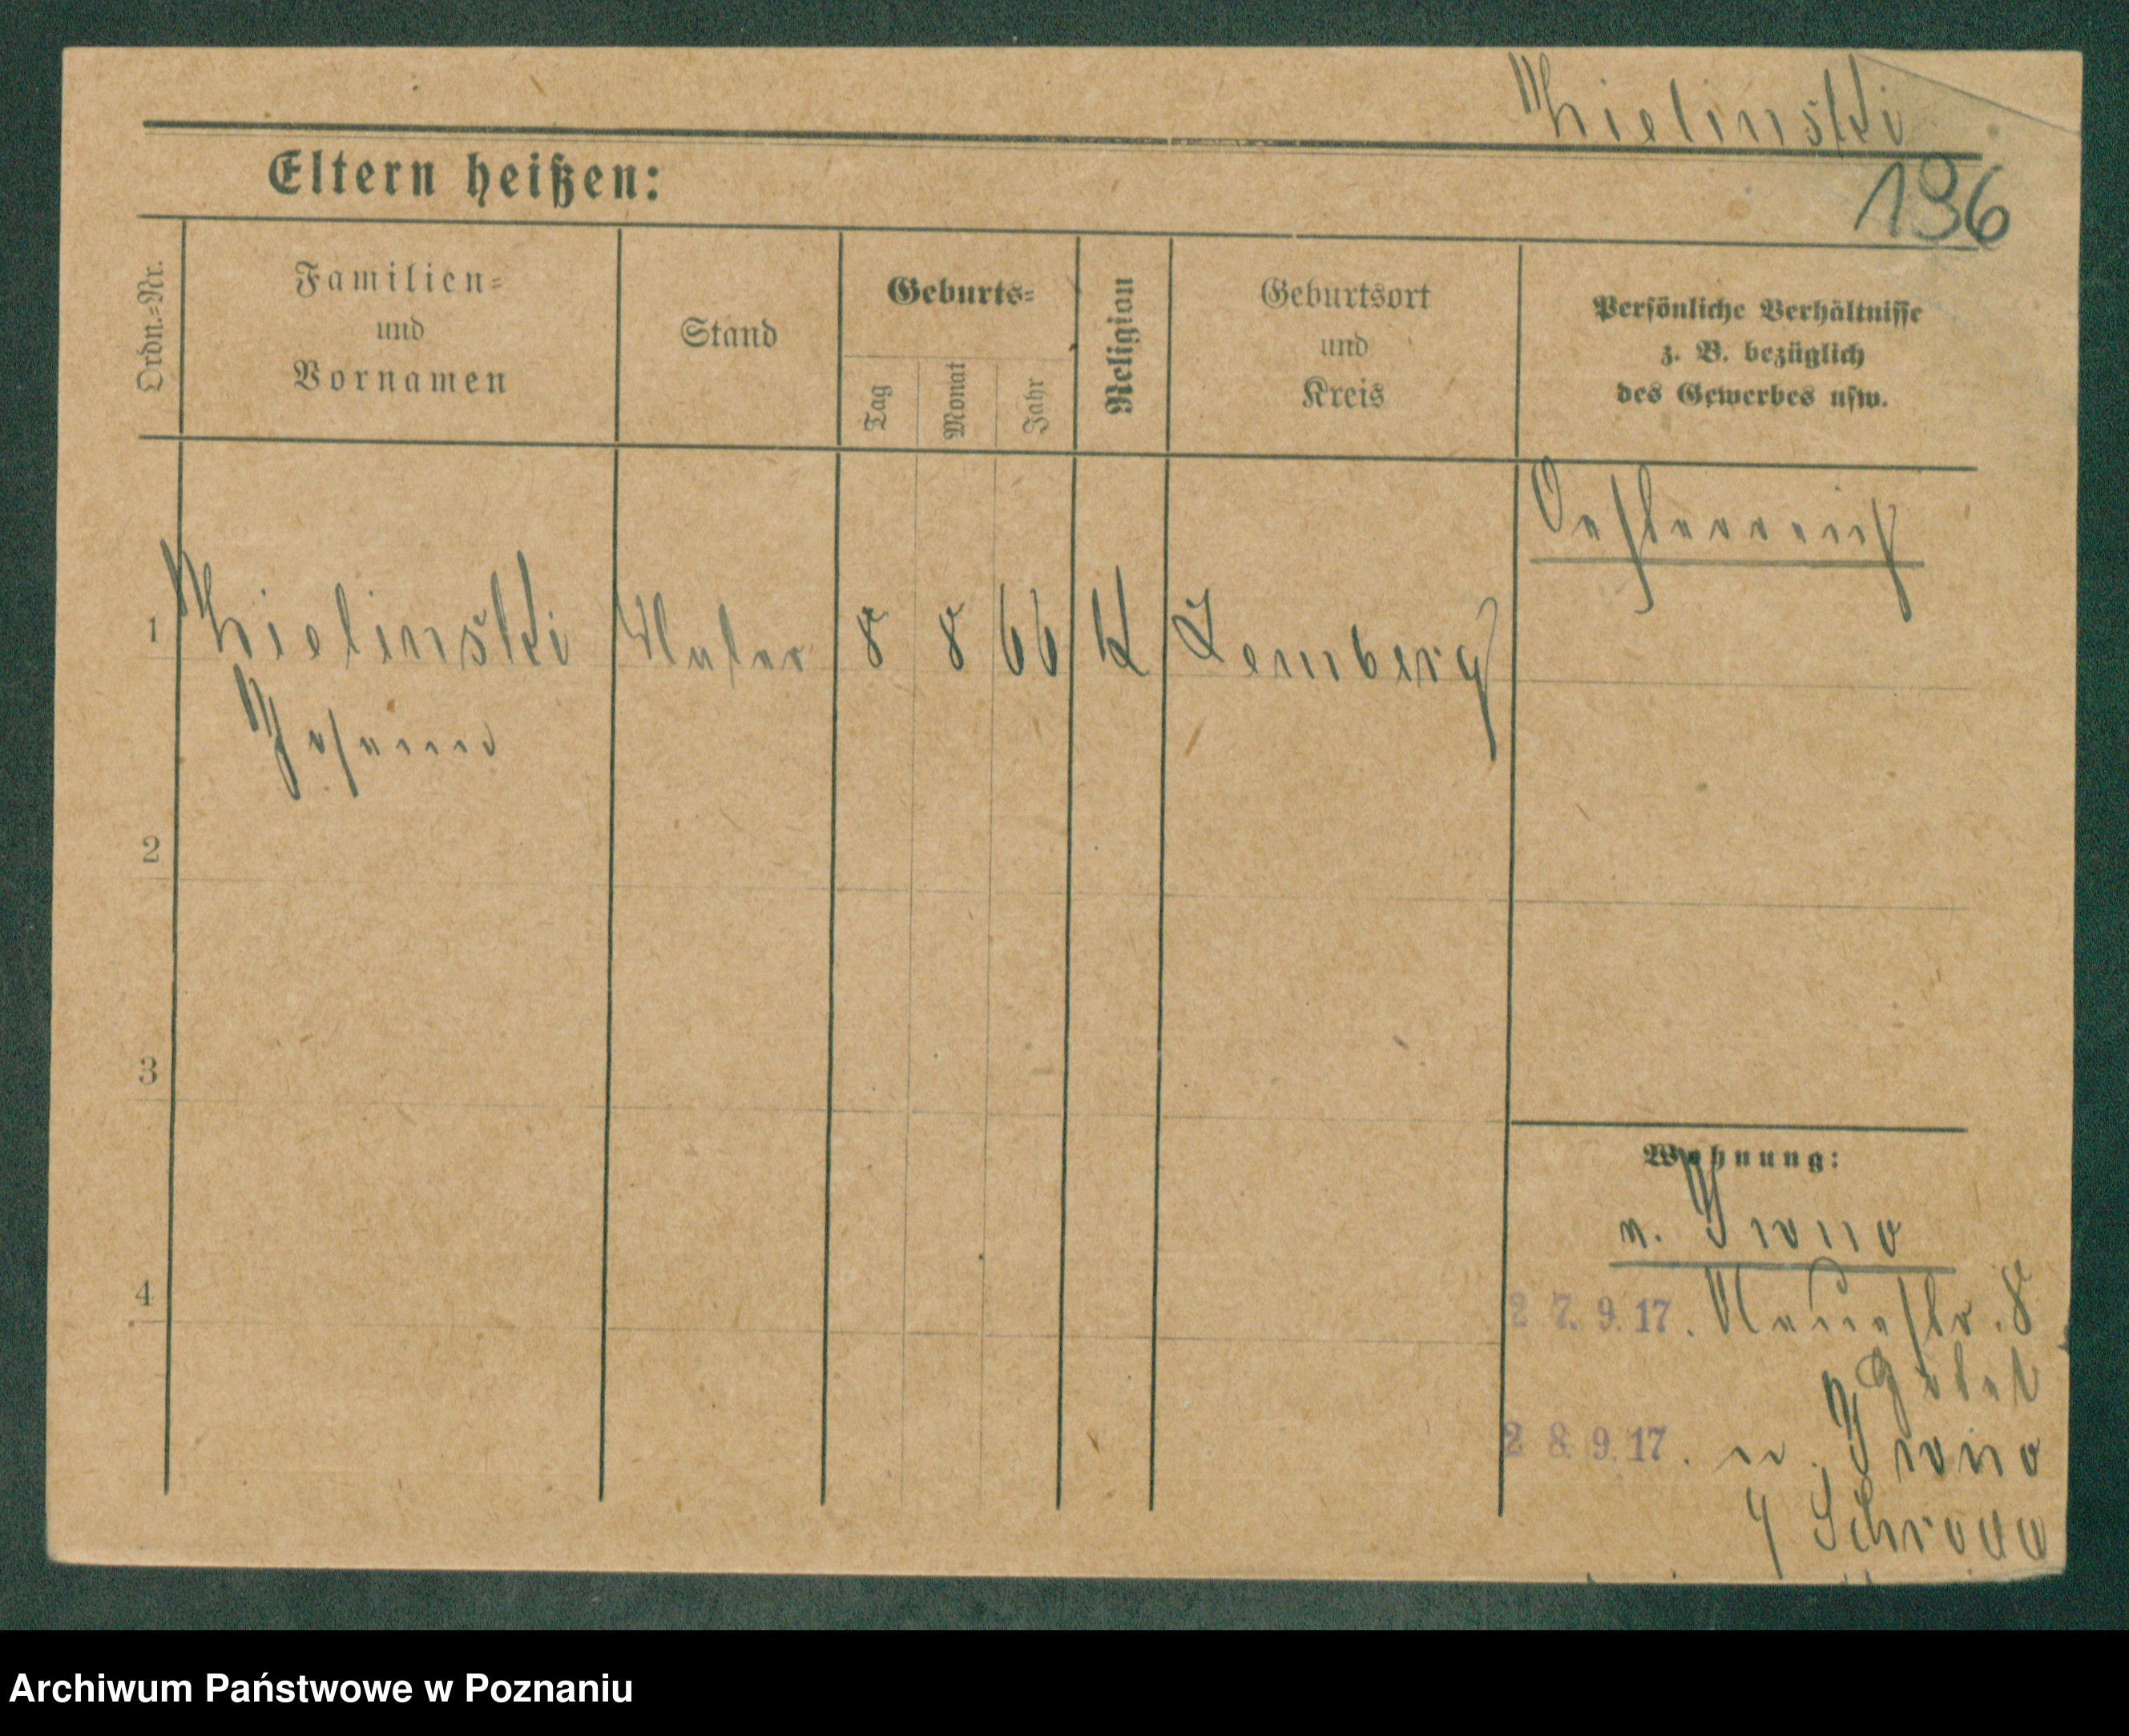 Zielinski
136
Eltern heißen:
Ordn.=Nr.
Familien=
und
Vornamen
Stand
Geburts=
Tag
Monat
Jahr
Religion
Geburtsort
und
Kreis
Persönliche Verhältnisse
z. B. bezüglich
des Gewerbes usw.
Oesterreich
1 Zielinski Maler 8 8 66 K Lemberg
Johann
2
3
Wohnung:
n. Iwno
4
27.9.17. Neuestr. 8
Hotel
28.9.17. n. Iwno
Schroda
Archiwum Państwowe w Poznaniu